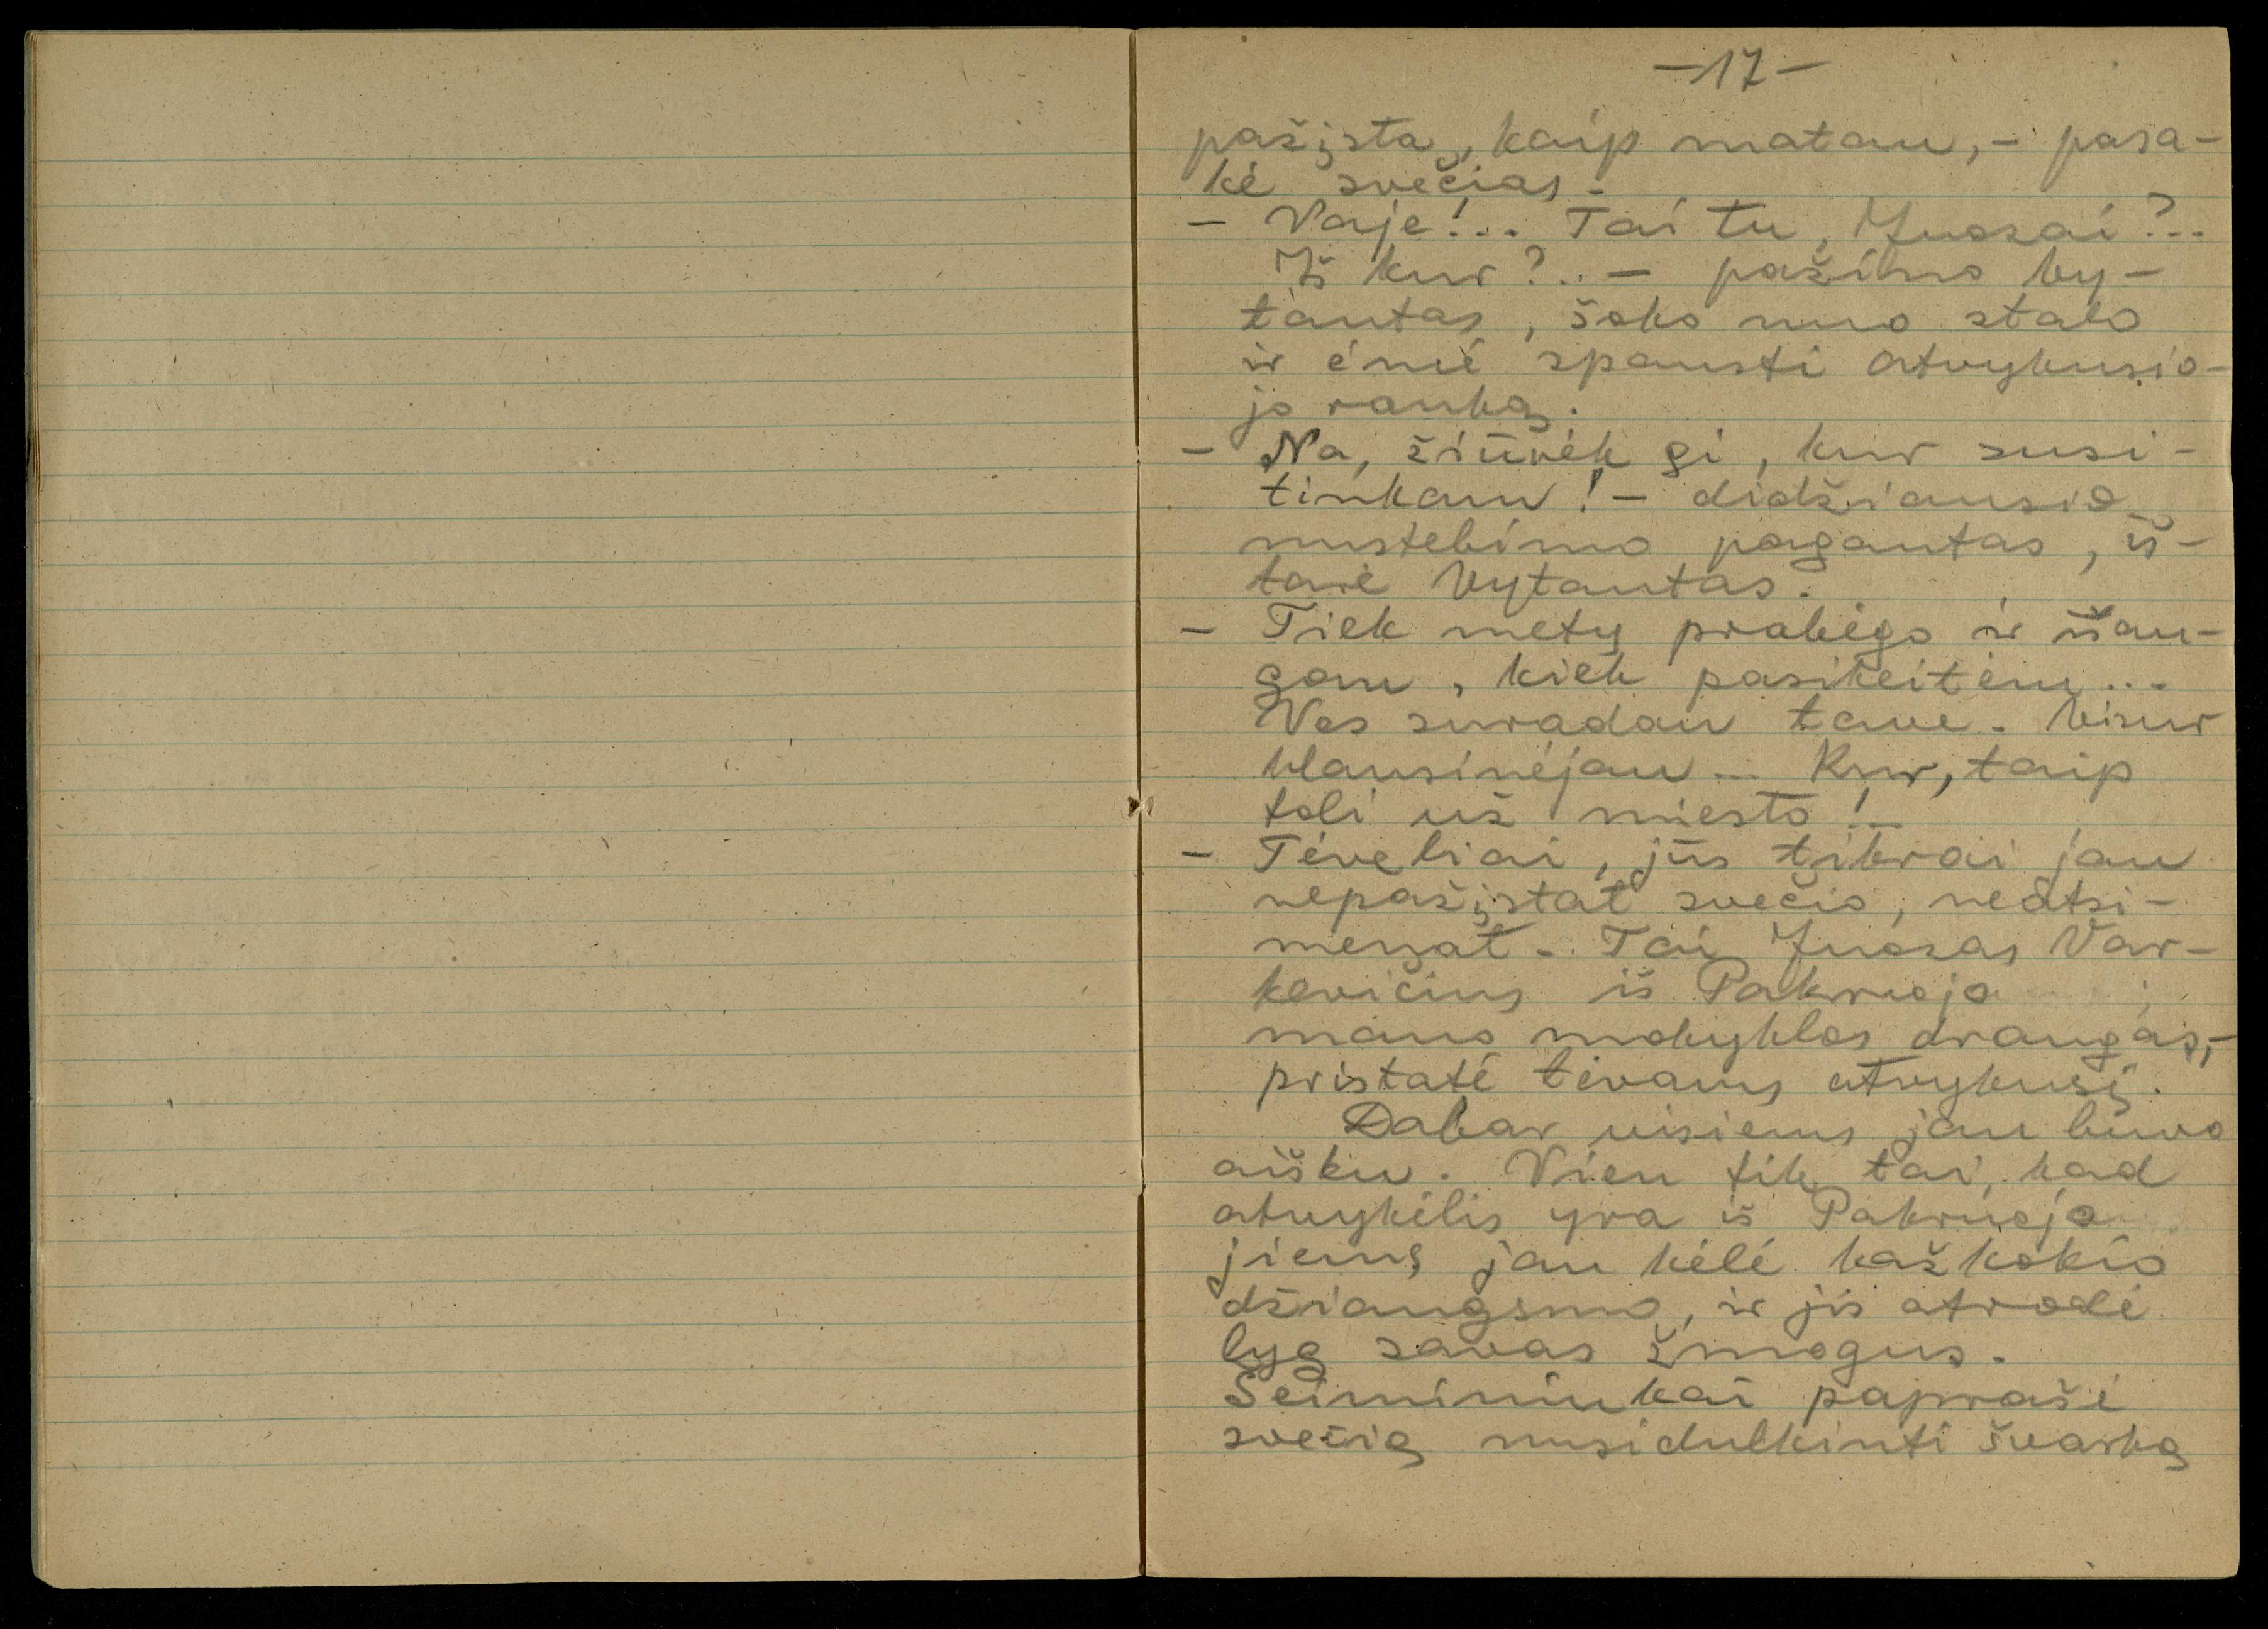 -17-
pažįsta, kaip matau, - pasa-
kė svečias.
- Vaje!.. Tai tu, Juozai?..
Iš kur?.. - pažino Vy-
tautas, šoko nuo stalo
ir ėmė spausti atvykusio-
jo ranką.
- Na, žiūrėk gi, kur susi-
tinkam! - didžiausio
nustebimo pagautas, iš-
tarė Vytautas.
- Tiek metų prabėgo ir išau-
gom, kiek pasikeitėm...
Ves suradau tave. Visur
klausinėjau... Kur, taip
toli už miesto!..
- Tėveliai, jūs tikrai jau
nepažįstat svečio, neatsi-
menat. Tai Juozas Var-
kevičius iš Pakruojo ;
mano mokyklos draugas,-
pristatė tėvams atvykusį.
Dabar visiems jau buvo
aišku. Vien tik tai, kad
atvykėlis yra iš Pakruojo
jiems jau kėlė kažkokio
džiaugsmo, ir jis atrodė
lyg savas žmogus.
Šeimininkai paprašė
svečią nusidulkinti švarką